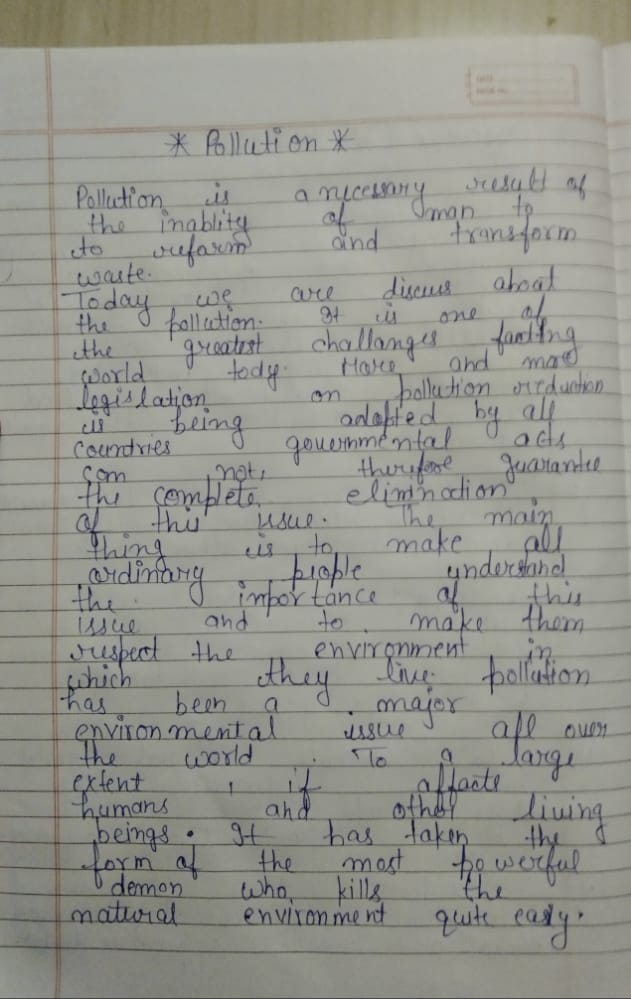 * Pollution *
Pollution is a necessary result of
the inablity of man to
to reform and transform
waste.
Today we are discuss about
the pollution. It is one of
the greatest challanges
world tody. More and more
legislation on pollution reduction
is being adopted by all
countries governmental acts
can not, therefore guarantee
the complete elimination
of this issue. The main
thing is to make all
ordinary people understand
the importance of this
issue and to make them
respect the environment in
which they live. pollution
has been a major
environmental issue all over
the world. To a large
extent, it affacts
humans and other living
beings. It has taken the
form of the most powerful
demon who kills the
natural environment quite easly.